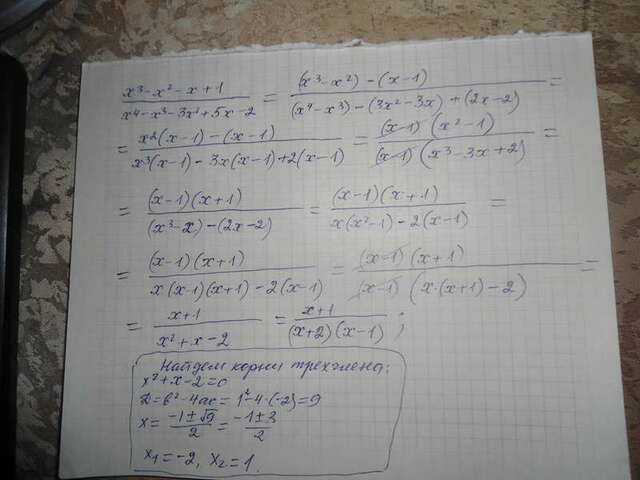 (x³-x²-x+1)/(x⁴-x³-3x²+5x-2) = ((x³-x²)-(x-1))/((x⁴-x³)-(3x²-3x)+(2x-2)) =
= (x²(x-1)-(x-1))/(x³(x-1)-3x(x-1)+2(x-1)) = ((x-1)(x²-1))/((x-1)(x³-3x+2)) =
= ((x-1)(x+1))/((x³-x)-(2x-2)) = ((x-1)(x+1))/(x(x²-1)-2(x-1)) =
= ((x-1)(x+1))/(x(x-1)(x+1)-2(x-1)) = ((x-1)(x+1))/((x-1)(x·(x+1)-2)) =
= (x+1)/(x²+x-2) = (x+1)/((x+2)(x-1)) ;
Найдем корни трехчлена:
x²+x-2=0
D=b²-4ac=1²-4·(-2)=9
x=(-1±√9)/2=(-1±3)/2
x₁=-2, x₂=1.